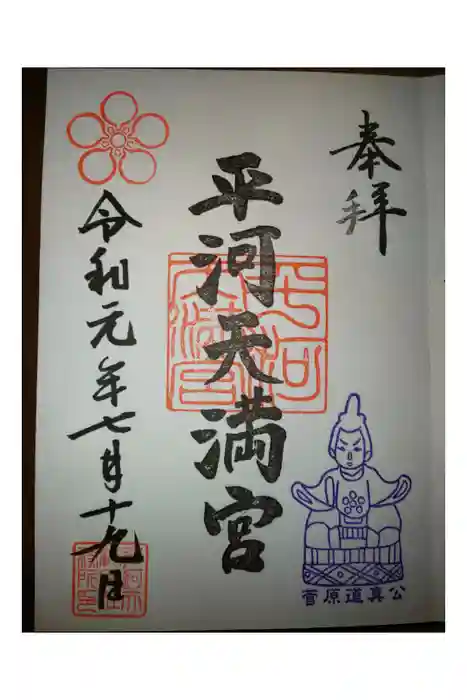 奉拝
平河天満宮
令和元年七月十九日
菅原道真公